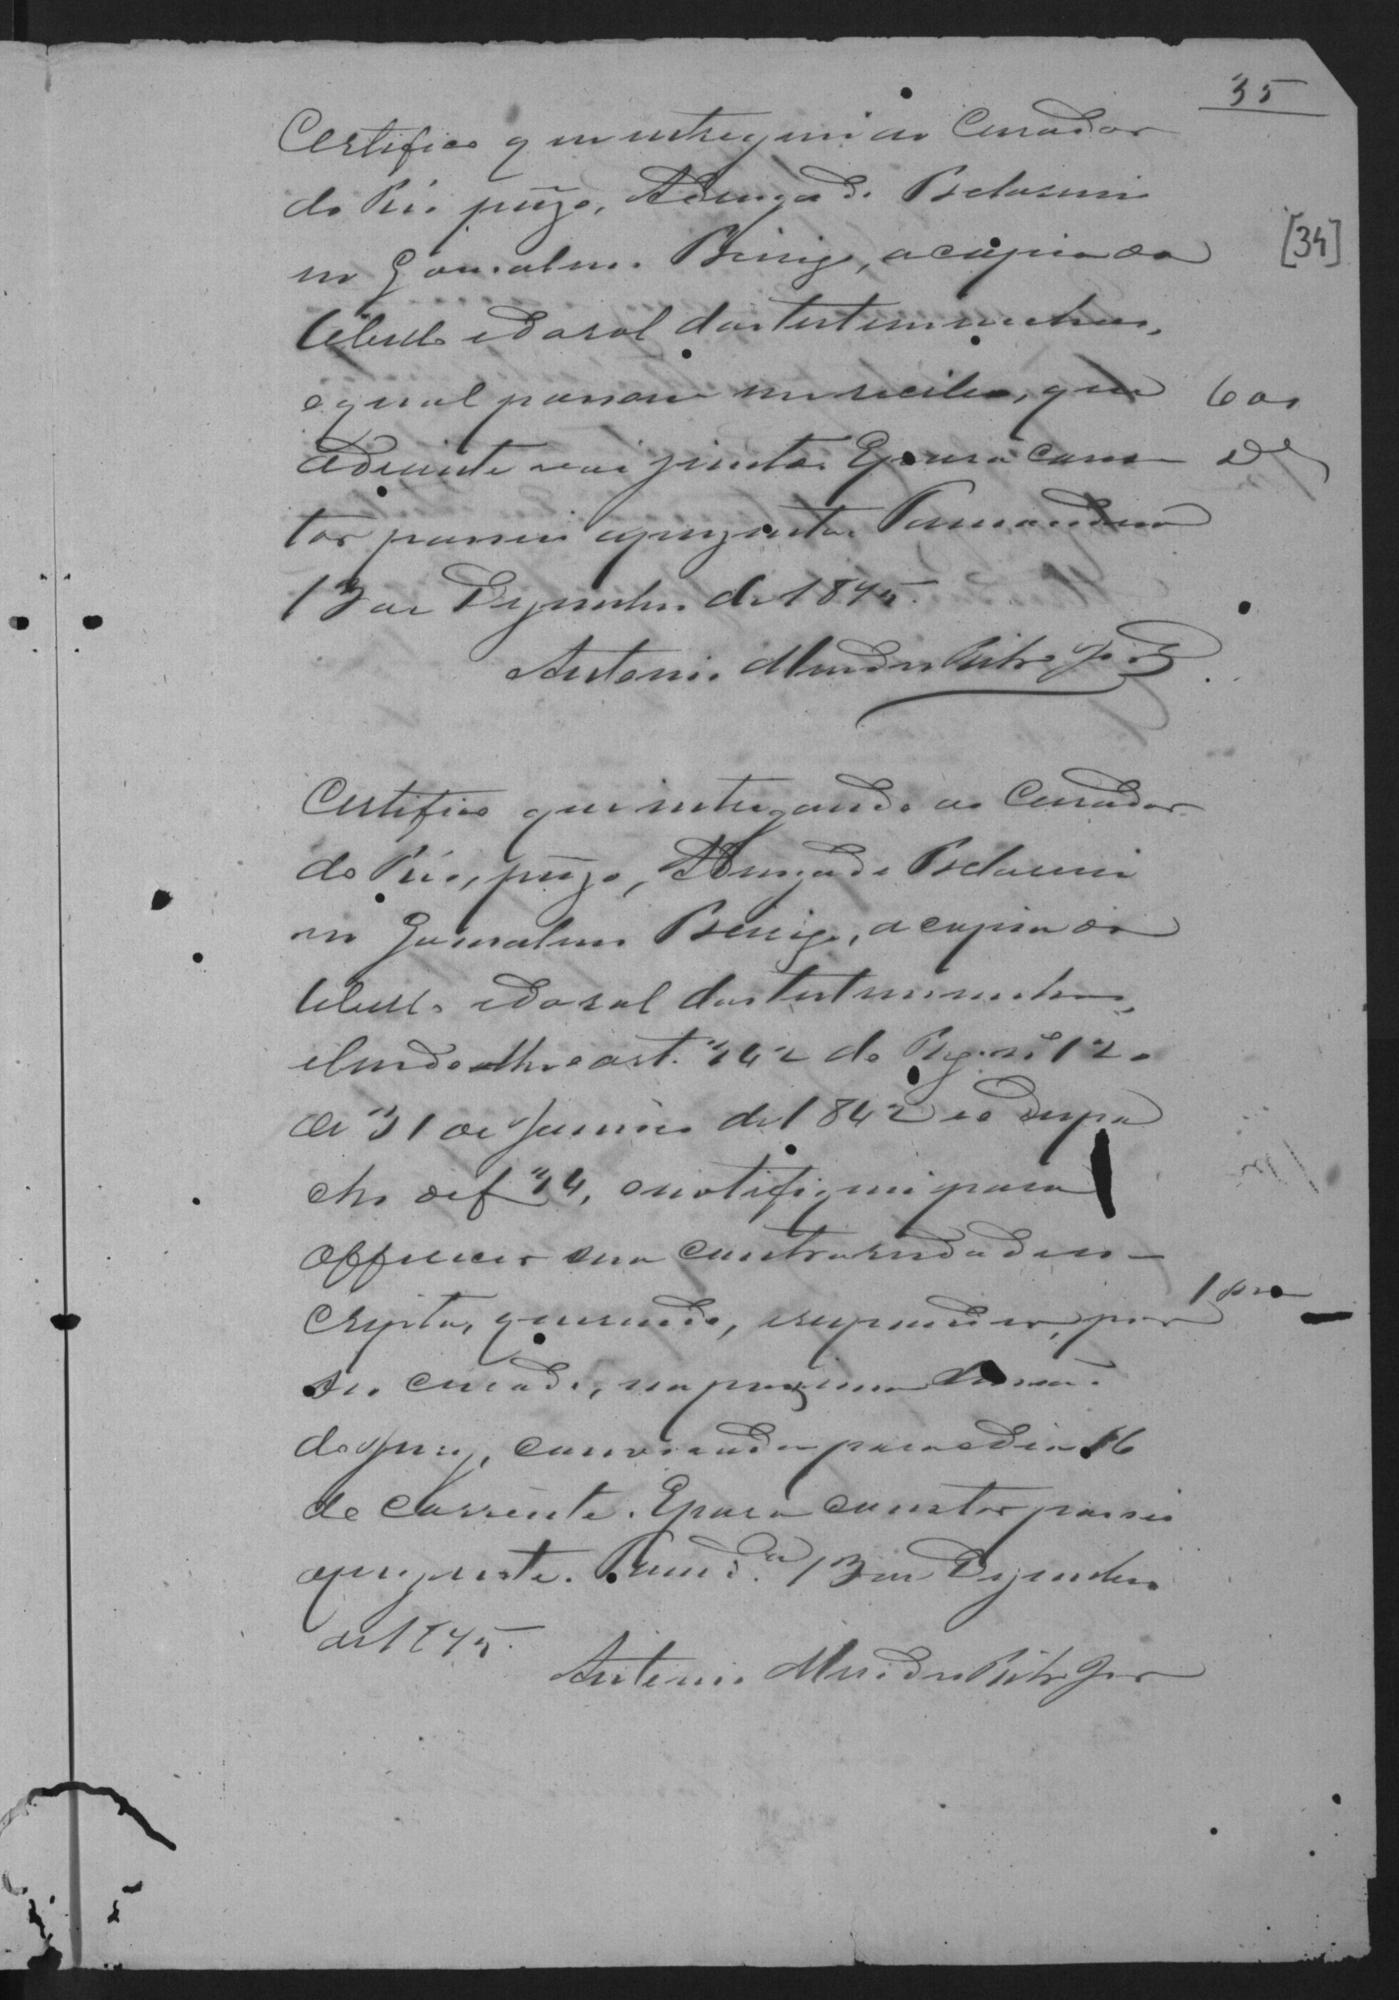 35
[34]
Certifico q entreguei ao Curador
do Réo prezo, Advogado Belarmi
no Gonsalves Bening, a copia do
Libello e do rol das testemunhas,
o qual passou-me recibo, que
adeiante vai junto. E para cons-
tar passei aprezente. Parnaendeua
13 de Dezembro de 1875.
Antonio Mendes
Certifico que intregando ao Curador
do Réo, prezo, Advogado Belarmi
no Gonsalves Bening, a copia do
Libello e do rol das testemunhas,
e lendo-lhe o art. 342 do Reg. nº 120
de 31 de Janeiro de 1842 e o Despa
cho de f 34, o notifiquei para
offerecer sua contrariedade es-
cripta, querendo, e responder, por
seo curado, na proxima
do Jury, convocada para o dia 16
do corrente. E para constar passei
aprezente. 13 de Dezembro
de 1875.
Antonio Mendes